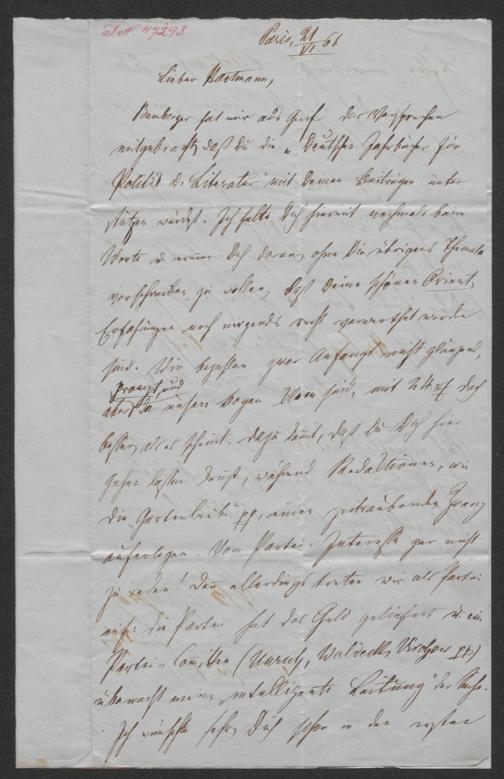 47298
Paris, 21/VI 61
Lieber Hartmann,
Bamberger hat mir aus Genf das Versprechen
mitgebracht, daß Du die „Deutschen Jahrbücher für
Politik u. Literatur" mit Deinen Beiträgen unter
stützen würdest. Ich halte Dich hiermit nochmals beim
Worte u. erinnere Dich daran, ohne Dir übrigens Themata
vorschreiben zu wollen, daß Deine schönen Orient-
Erfahrungen noch nirgends recht verwerthet worden
sind. Wir bezahlen zwar Anfangs nicht glänzend,
prompt, und
aber da unsere Bogen klein sind, mit 24 doch
besser, als es scheint. Dazu kommt, daß Du Dich hier
gehen lassen kannst, während Redaktionen, wie
die „Gartenlaube" pp, einen zeitraubenden Zwang
auferlegen. Vom Partei-Interesse gar nicht
zu reden! Denn allerdings treten wir als Partei
auf: die Partei hat das Geld geliefert u. ein
Partei-Comitee (Unruh, Waldeck, Virchow pp)
überwacht intelligente Leitung der Sache.
Ich wünschte sehr, Dich schon in den ersten